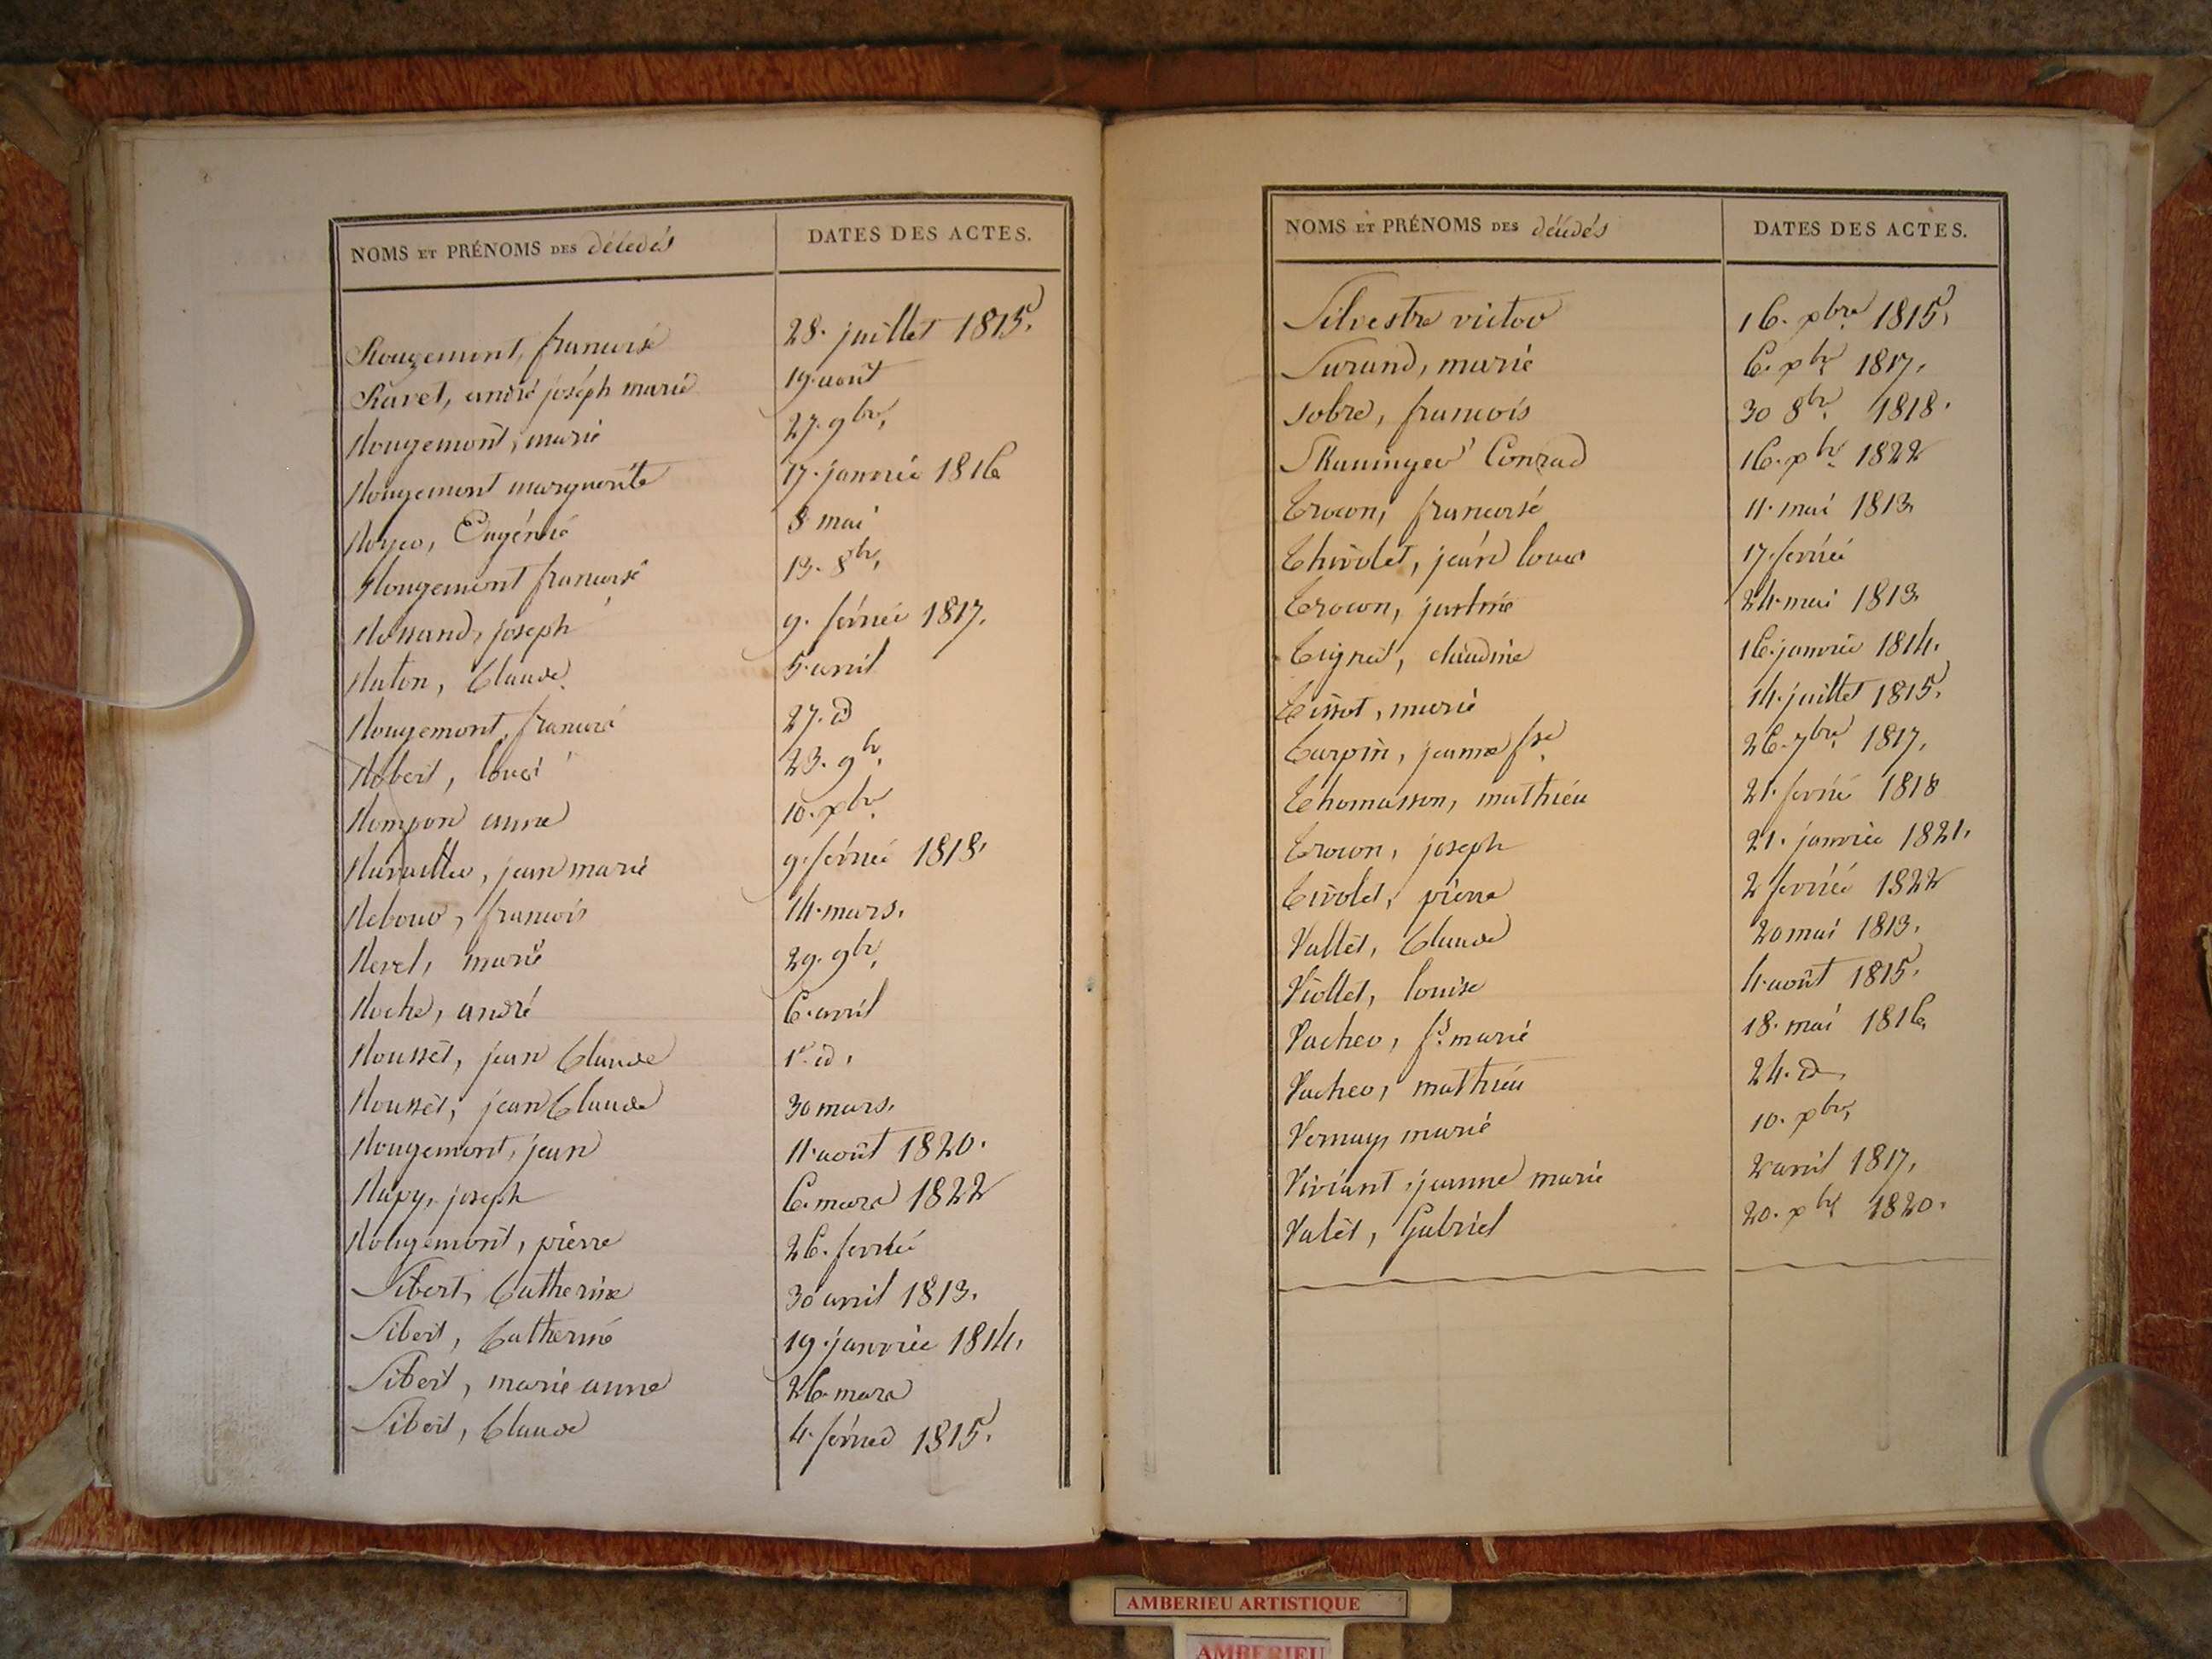 NOMS ET PRÉNOMS DES décédés
DATES DES ACTES.
Rougemont, francoise 28. juillet 1815.
Ravet, andré joséph marie 19. août
Rougemont, marie 27. 9bre.
Rougemont marguerite 17. janvier 1816
Royer, Eugénie 8 mai
Rougemont francoise 13. 8bre.
Rossand, joseph 9. février 1817.
Raton, Claude 5. avril
Rougemont, francois 27. id
Robert, louis 23. 9br.
Rompon anne 10. xbre.
Ravaillier, jean marie 9. février 1818.
Rebour, francois 14. mars.
Revel, marie 29. 9br.
Roche, andré 6. avril
Rousset, jean Claude 1er. id.
Rousset, jean Claude 30 mars.
Rougemont, jean 11. août 1820.
Rapy, joseph 6. mars 1822
Rougemont, pierre 26. fevrier
Sibert, Catherine 30 avril 1813.
Sibert, Catherine 19. janvier 1814.
Sibert, marie anne 26. mars
Sibert, Claude 4. février 1815.
NOMS ET PRÉNOMS DES décédés
DATES DES ACTES.
Silvestre victor 16. xbre 1815.
Surand, marie 6. xbr 1817.
Sobre, francois 30 8br. 1818.
Skuninger Conrad 16. xbr. 1822
Trocon, francoise 11. mai 1813.
Thivolet, jean louis 17. février
Trocon, justine 24. mai 1813
Tignat, claudine 16. janvier 1814.
Tissot, marie 14. juillet 1815.
Turpin, jeanne fse. 26. 7bre. 1817.
Thomasson, mathieu 21. fevrier 1818
Trocon, joseph 21. janvier 1821.
Tivolet, pierre 2 fevrier 1822
Vallet, Claude 20 mai 1813.
Viollet, louise 4. août 1815.
Vacher, fs. marie 18. mai 1816
Vacher, mathieu 24. id
Vernay, marie 10. xbre.
Viviant, jeanne marie 2 avril 1817.
Valet, Gabriel 20. xbre 1820.
AMBERIEU ARTISTIQUE
AMBERIEU